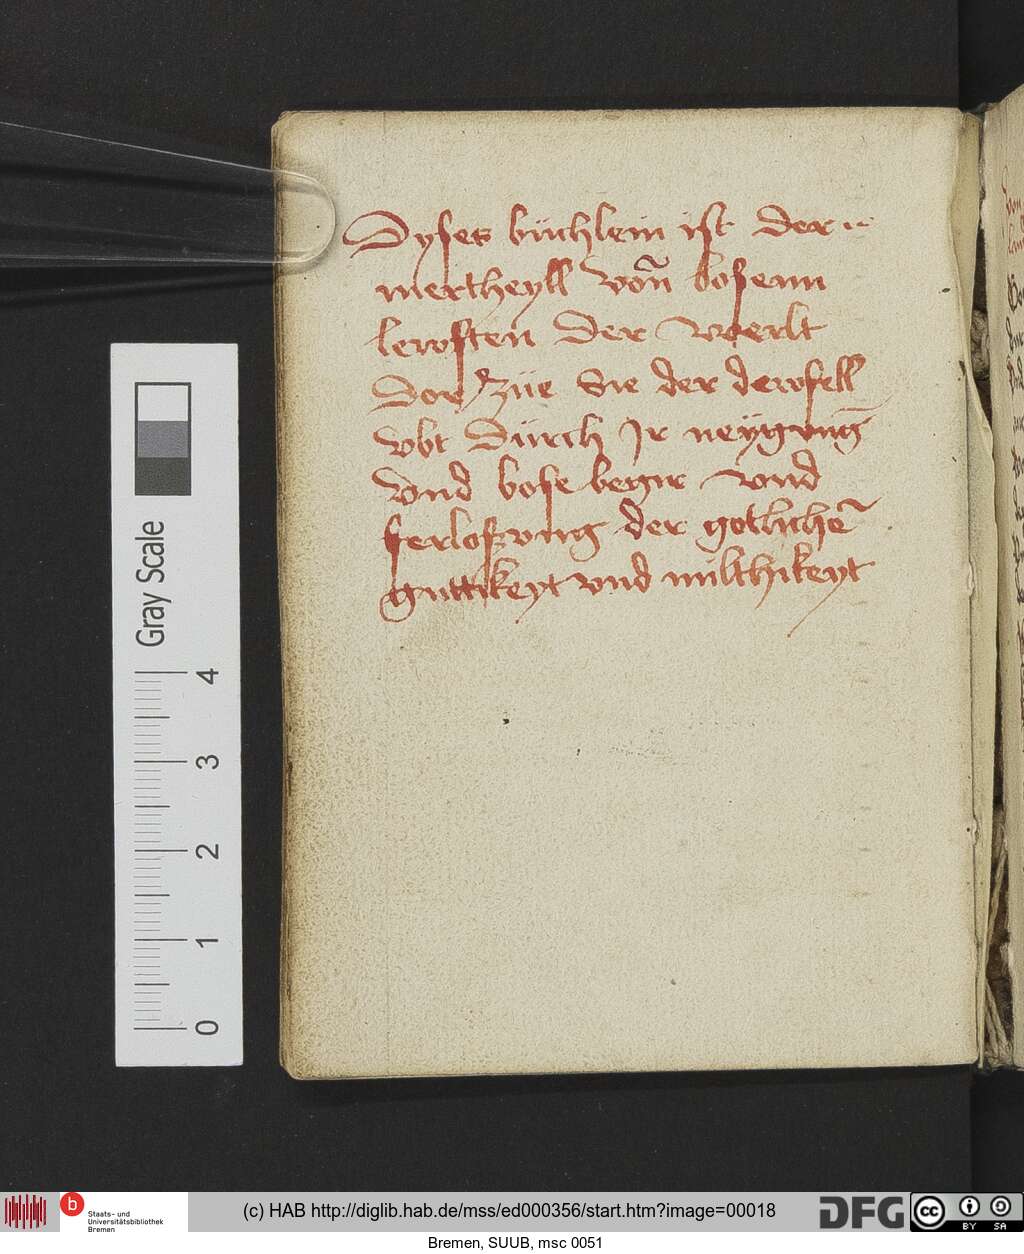 Dyses büchlein ist der
mertheyll vonn bosenn
lewften der werlt
Dor zue Sie der dewfell
vbt Dürch Jr neygung
Vnd bose begir vnd
ferloszung der gotlichē
guttikeyt vnd milthikeyt
Gray Scale
4
3
2
1
0
b
Staats- und
Universitätsbibliothek
Bremen
(c) HAB http://diglib.hab.de/mss/ed000356/start.htm?image=00018
DFG
cc
BY SA
Bremen, SUUB, msc 0051